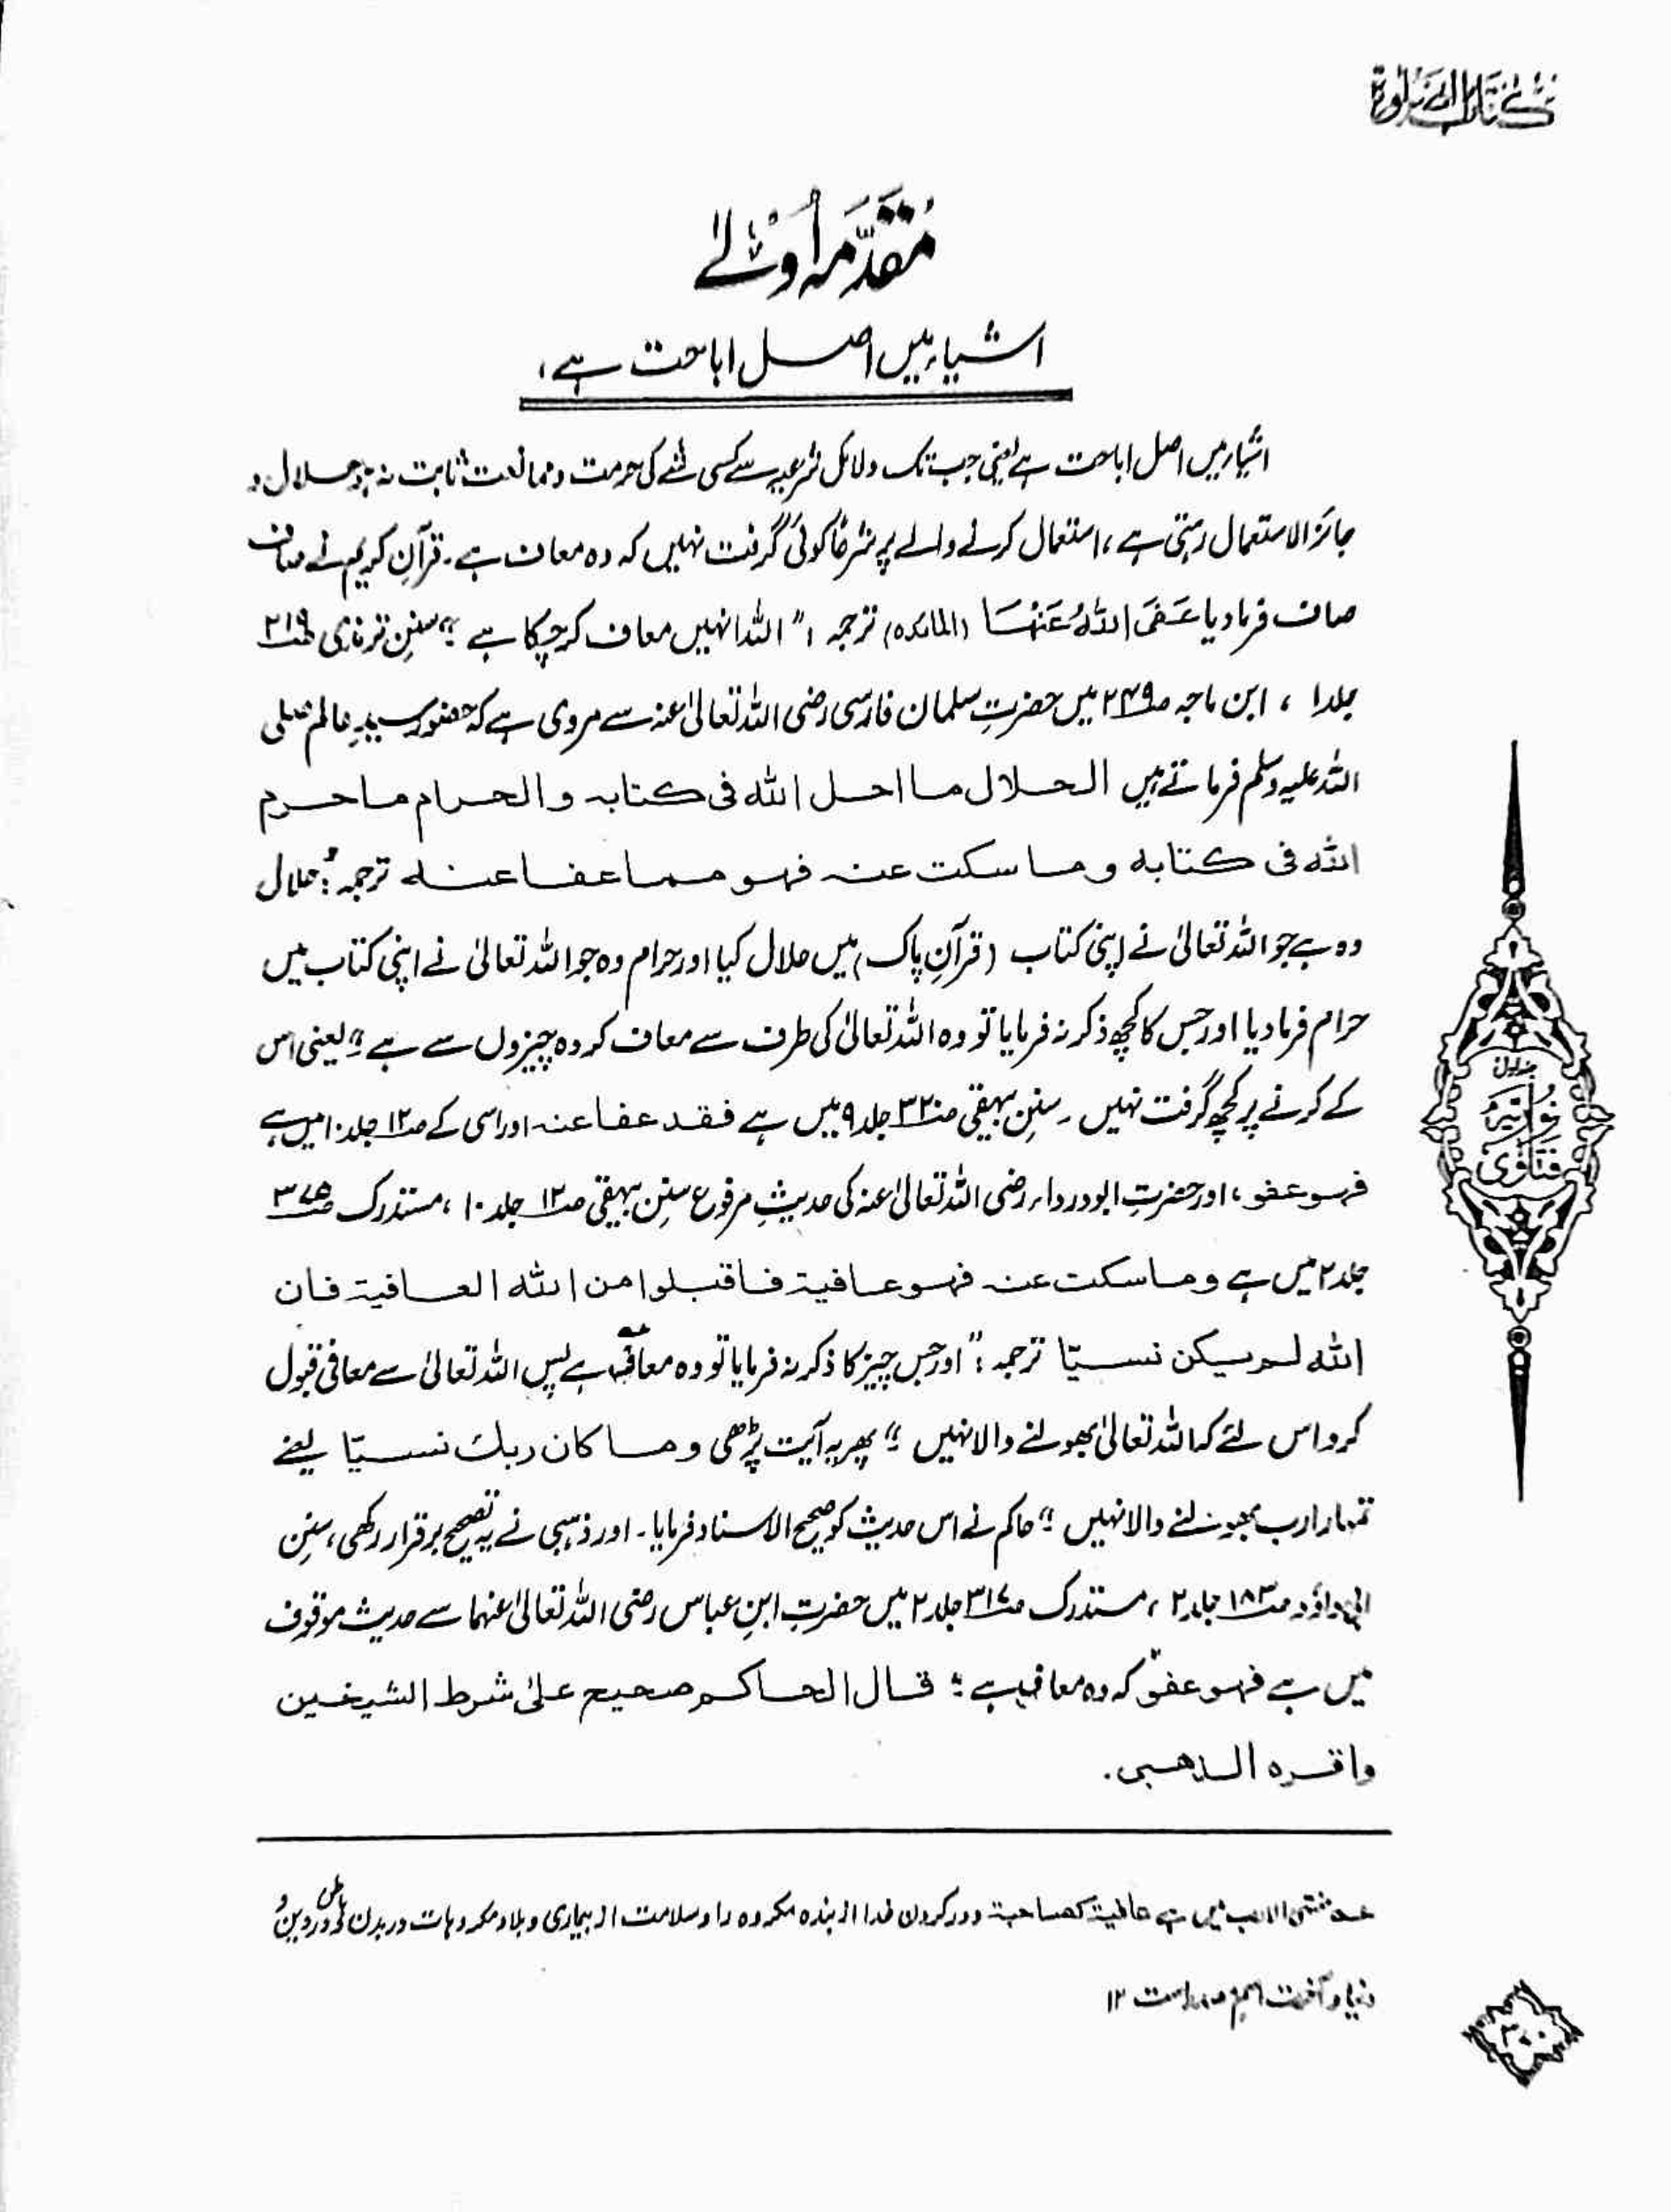 کتاب الصلوٰۃ
مُقدّمہ اُولٰے
اشیاء میں اصل اباحت ہے،
اشیاء میں اصل اباحت ہے یعنی جب تک دلائل شرعیہ سے کسی شئے کی حرمت و ممانعت ثابت نہ ہو حلال و
جائز الاستعمال رہتی ہے، استعمال کرنے والے پر شرعًا کوئی گرفت نہیں کہ وہ معاف ہے۔ قرآنِ کریم نے صاف
صاف فرما دیا عَفَی اللّٰہُ عَنْہَا (المائدہ) ترجمہ: "اللہ انہیں معاف کر چکا ہے" سننِ ترمذی ص۲۱۹
جلد۱، ابن ماجہ ص۲۴۹ میں حضرتِ سلمان فارسی رضی اللہ تعالیٰ عنہ سے مروی ہے کہ حضور سیدِ عالم صلی
اللہ علیہ وسلم فرماتے ہیں الحلال ما احل اللّٰہ فی کتابہ والحرام ما حرم
اللّٰہ فی کتابہ وما سکت عنہ فہو مما عفا عنہ ترجمہ: "حلال
وہ ہے جو اللہ تعالیٰ نے اپنی کتاب (قرآنِ پاک) میں حلال کیا اور حرام وہ جو اللہ تعالیٰ نے اپنی کتاب میں
حرام فرما دیا اور جس کا کچھ ذکر نہ فرمایا تو وہ اللہ تعالیٰ کی طرف سے معاف کردہ چیزوں سے ہے" یعنی اس
کے کرنے پر کچھ گرفت نہیں۔ سننِ بیہقی ص۳۲۰ جلد ۹ میں ہے فقد عفا عنہ اور اسی کے ص۱۲ جلد۱۰ میں ہے
فہو عفو، اور حضرتِ ابودرداء رضی اللہ تعالیٰ عنہ کی حدیثِ مرفوع سننِ بیہقی ص۱۲ جلد ۱۰، مستدرک ص۳۷۵
جلد۲ میں ہے وما سکت عنہ فہو عافیۃ فاقبلوا من اللّٰہ العافیۃ فان
اللّٰہ لم یکن نسیّا ترجمہ: "اور جس چیز کا ذکر نہ فرمایا تو وہ معاف عہ ہے پس اللہ تعالیٰ سے معافی قبول
کرو اس لئے کہ اللہ تعالیٰ بھولنے والا نہیں" پھر یہ آیت پڑھی وما کان ربك نسیّا یعنے
تمہارا رب بھولنے والا نہیں" حاکم نے اس حدیث کو صحیح الاسناد فرمایا۔ اور ذہبی نے یہ تصحیح برقرار رکھی، سننِ
ابی داؤد ص۱۸۳ جلد۲، مستدرک ص۳۱۷ جلد۲ میں حضرتِ ابنِ عباس رضی اللہ تعالیٰ عنہما سے حدیث موقوف
میں ہے فہو عفوٌ کہ وہ معاف ہے؛ قال الحاکم صحیح علیٰ شرط الشیخین
واقرہ الذھبی.
عہ منتہی الارب میں ہے عافیۃ کصاحبۃ دور کردن خدا از بندہ مکروہ را و سلامت از بیماری و بلا و مکروہات در بدن و باطن در دین و
دنیا و آخرت اسم مصدرست ۱۲
جلد اول
نُوریّہ
فتاوٰی
۳۷۰